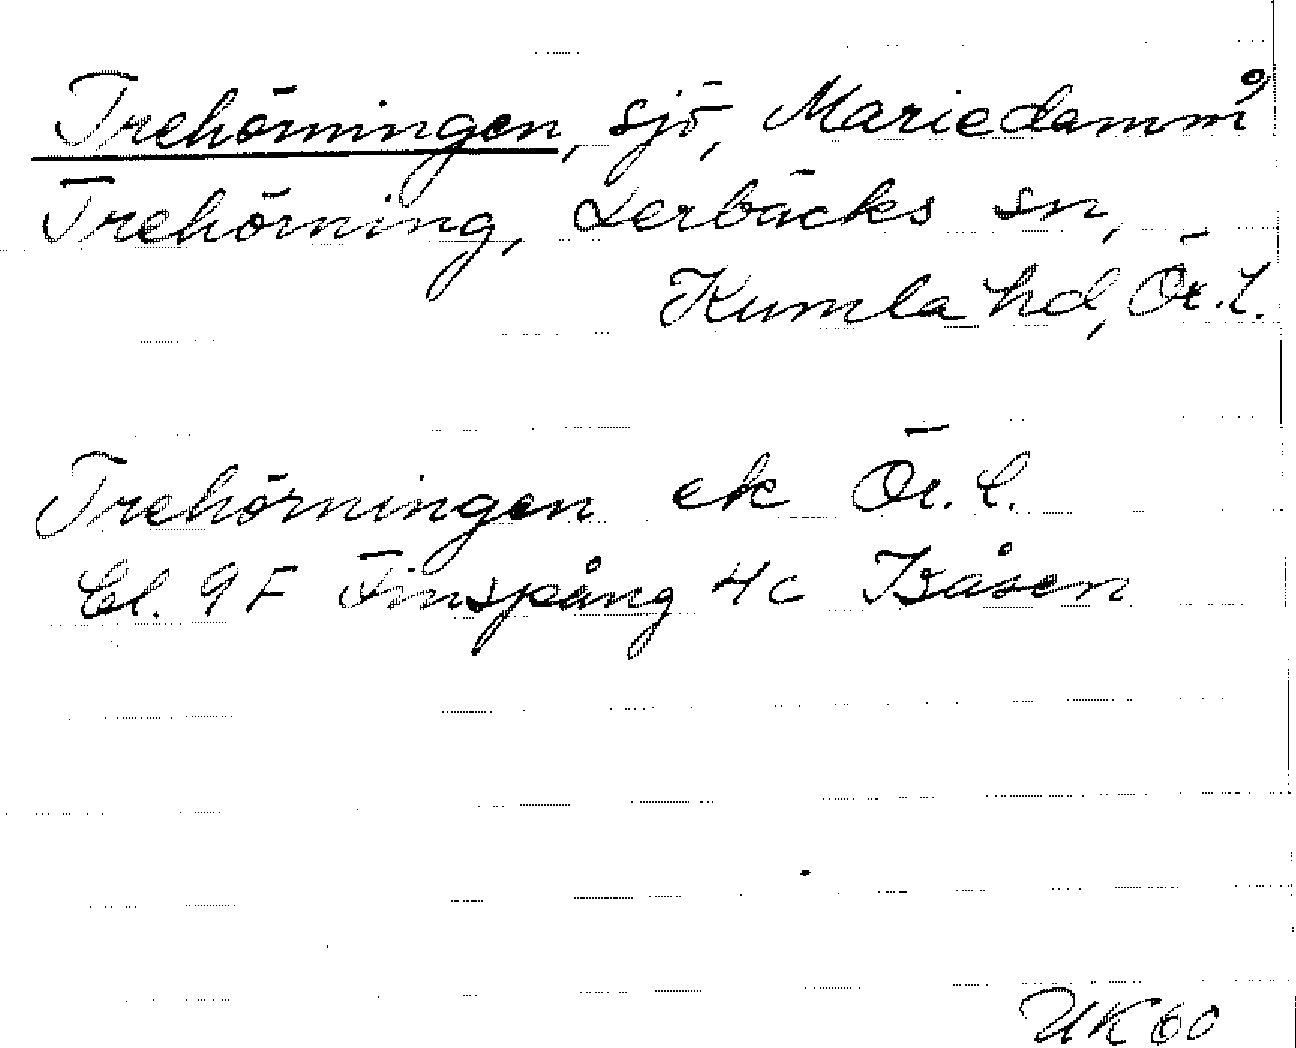 Trehörningen, sjö, Mariedamm
Trehörning, Lerbäcks sn,
Kumla hd, Ör. l.
Trehörningen ek Ör. l.
Bl. 9F Finspång 4c Båsen
UK 60